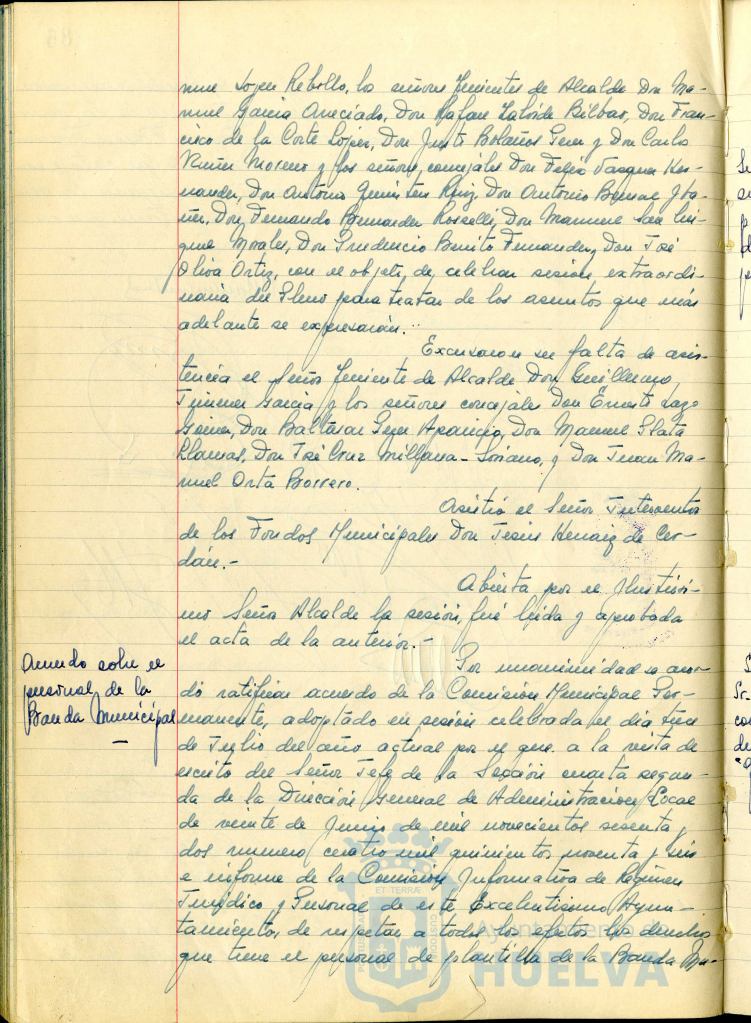 nuel López Rebollo, los señores Tenientes de Alcalde Don Ma-
nuel García Aneciado, Don Rafael Laloide Bilbao, Don Fran-
cisco de la Corte López, Don Justo Bolaños Gene y Don Carlos
Moreno y los señores concejales Don Félix Vazquez Her-
nandez, Don Antonio Ruiz, Don Antonio Bernal
Don Fernando Bernardez Rosselló, Don Manuel
Morales, Don Prudencio Benito Fernandez, Don José
Oliva Ortiz, con el objeto de celebrar sesión extraordi-
naria del Pleno para tratar de los asuntos que más
adelante se expresarán.
Excusaron su falta de asis-
tencia el Señor Teniente de Alcalde Don Guillermo
Jimenez Garcia y los señores concejales Don Ernesto Lazo
Don Baltasar Aparicio, Don Manuel Plata
Llamas, Don José Cruz Millana-Soriano, y Don Juan Ma-
nuel Orta Borrero.
Asistió el Señor Interventor
de los Fondos Municipales Don Jesús de Cer-
dán.-
Abierta por el Ilustrisi-
mo Señor Alcalde la sesión, fué leida y aprobada
el acta de la anterior.-
Acuerdo sobre el
personal de la
Banda Municipal
-
Por unanimidad se acor-
dó ratificar acuerdo de la Comisión Municipal Per-
manente, adoptado en sesión celebrada el dia trece
de Julio del año actual por el que a la vista de
escrito del Señor Jefe de la Sección cuarta segun-
da de la Dirección General de Administración Local
de veinte de Junio de mil novecientos sesenta y
dos numero cuatro mil quinientos noventa y seis
e informe de la Comisión Informativa de Régimen
Juridico y Personal de este Excelentísimo Ayun-
tamiento, de respetar a todos los efectos los derechos
que tiene el personal de plantilla de la Banda Mu-
Ayuntamiento de
HUELVA